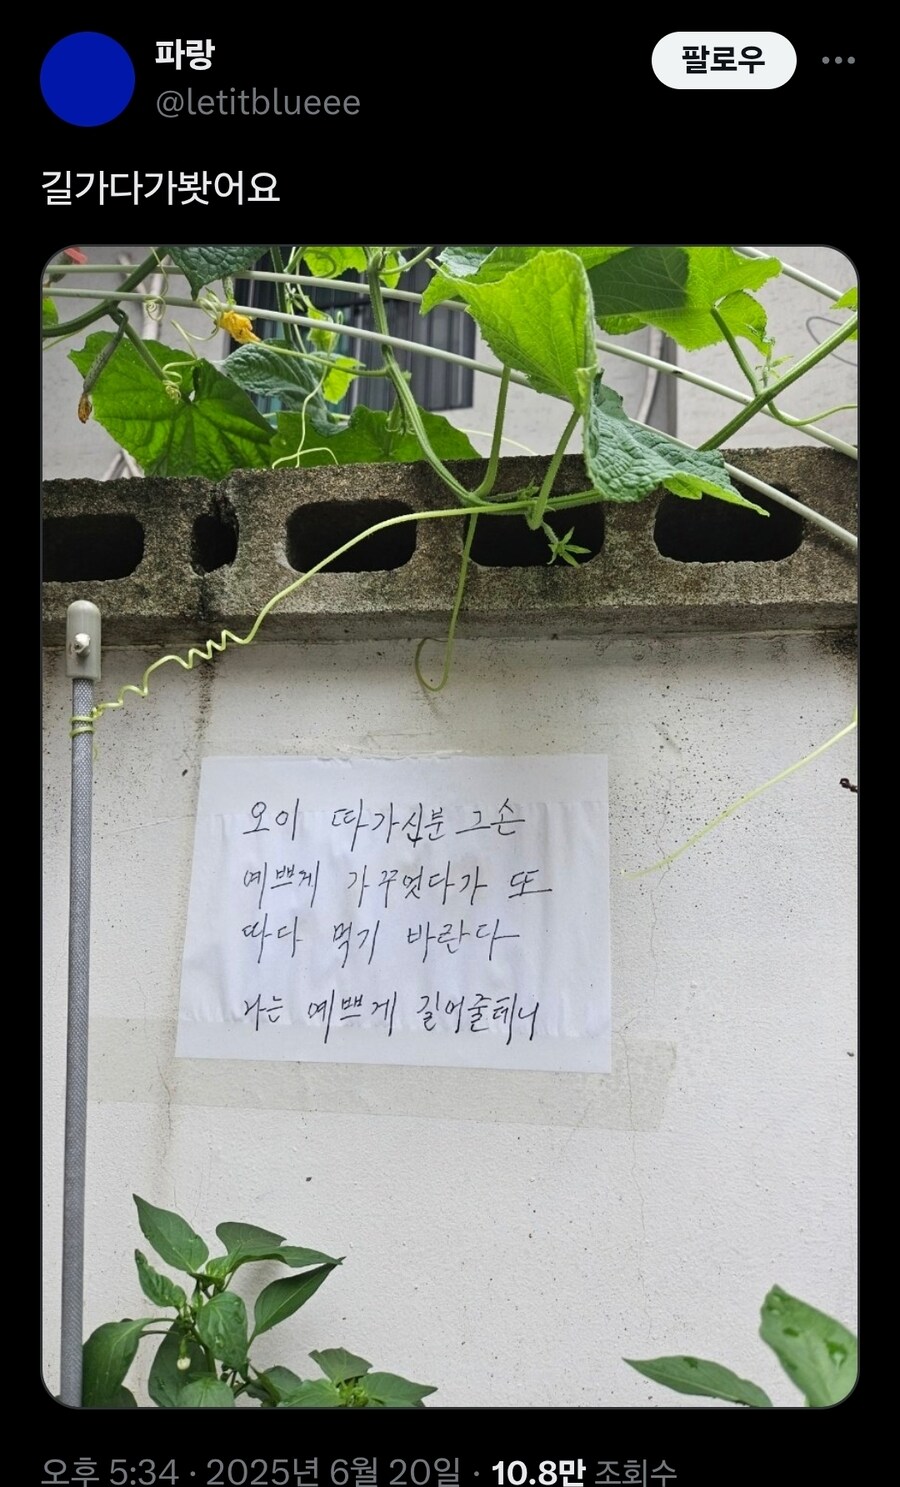 파랑
팔로우
@letitblueee
길가다가봣어요
오이 따가신분 그손
예쁘게 가꾸엇다가 또
따다 먹기 바란다
나는 예쁘게 길어줄테니
오후 5:34 · 2025년 6월 20일 · 10.8만 조회수